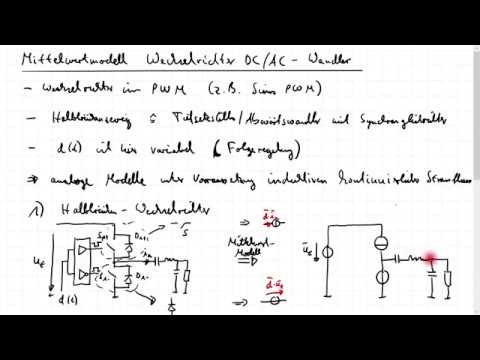 Mittelwertmodell Wechselrichter DC/AC - Wandler
- Wechselrichter im PWM (z.B. Sinus PWM)
- Halbbrückenzweig ≙ Tiefsetzsteller/Abwärtswandler mit Synchrongleichrichter
- d(t) ist hier variabel (Folgeregelung)
⇒ analoge Modelle unter Voraussetzung induktiven kontinuierlichen Stromfluss
1) Halbbrücken - Wechselrichter
Mittelwert-
Modell
d(t)